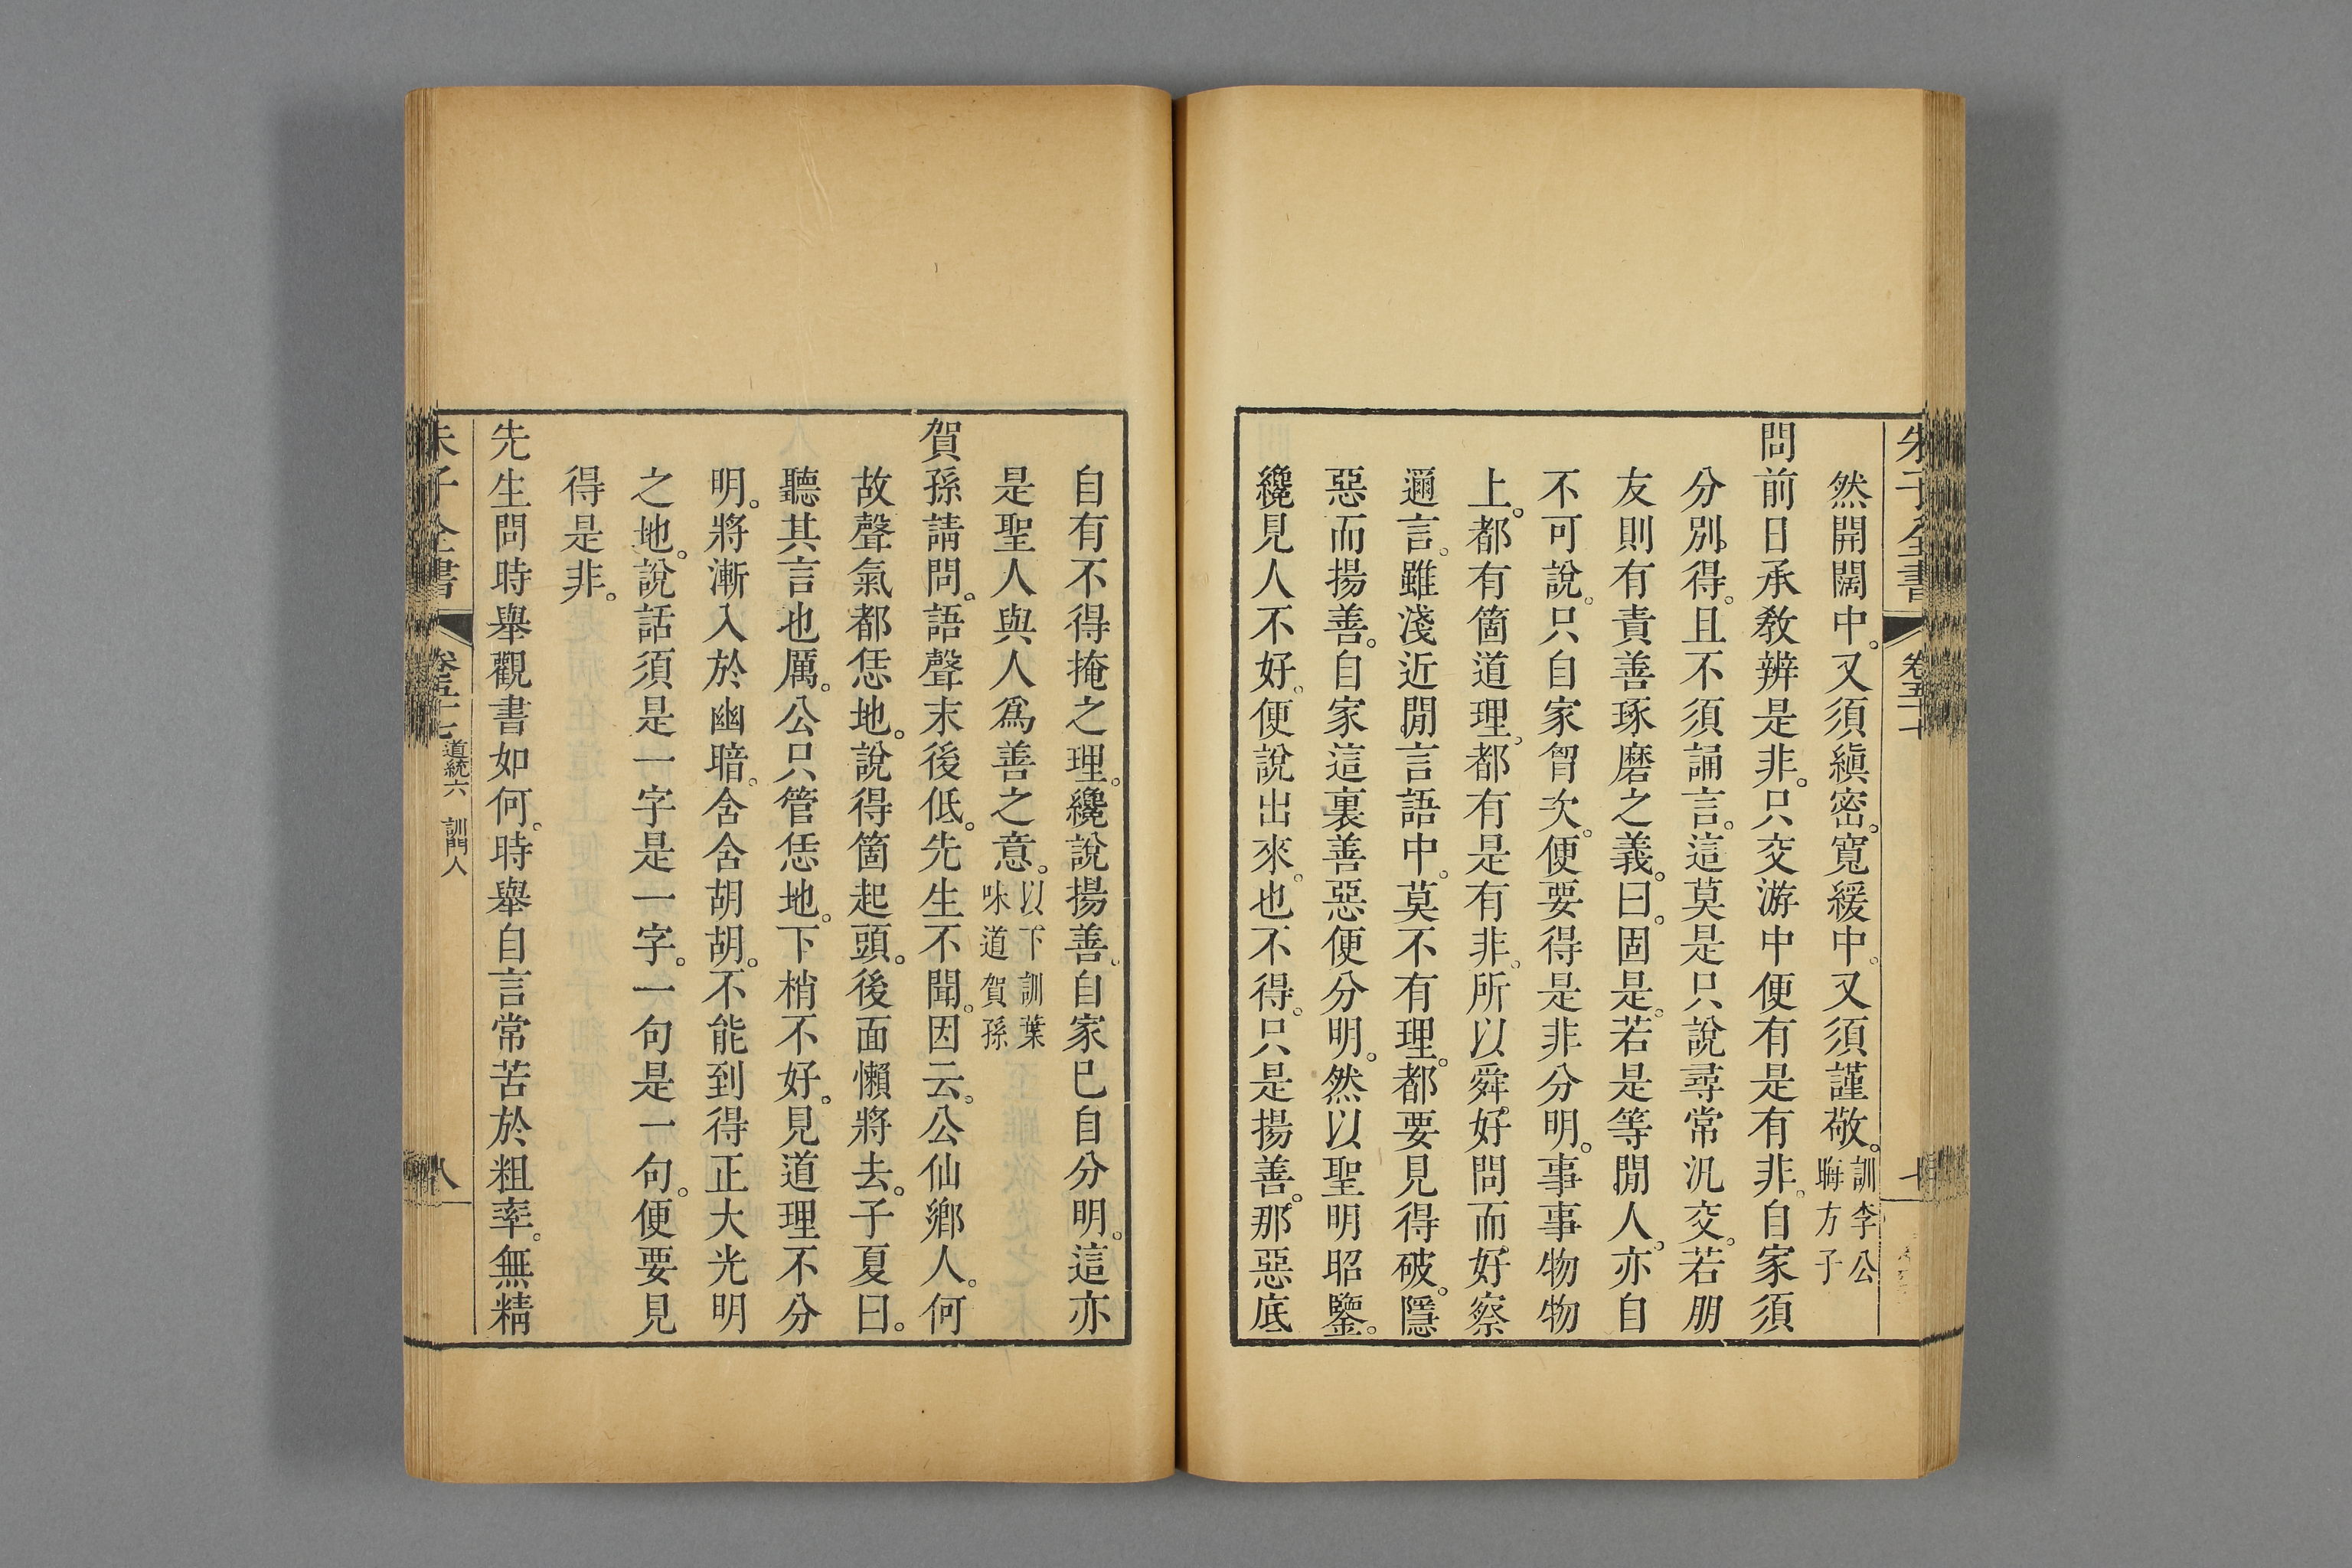 朱子全書 卷五十七 七
然開闊中。又須縝密。寬緩中。又須謹敬。訓李公晦方子
問前日承教辨是非。只交游中便有是有非。自家須
分別得。且不須誦言。這莫是只說尋常汎交。若朋
友則有責善琢磨之義。曰。固是。若是等閒人。亦自
不可說。只自家胷次。便要得是非分明。事事物物
上。都有箇道理。都有是有非。所以舜好問而好察
邇言。雖淺近閒言語中。莫不有理。都要見得破。隱
惡而揚善。自家這裏善惡便分明。然以聖明昭鑒。
纔見人不好。便說出來。也不得。只是揚善。那惡底
自有不得掩之理。纔說揚善。自家已自分明。這亦
是聖人與人爲善之意。以下訓葉味道賀孫
賀孫請問。語聲末後低。先生不聞。因云。公仙鄉人。何
故聲氣都恁地。說得箇起頭。後面懶將去。子夏曰。
聽其言也厲。公只管恁地。下梢不好。見道理不分
明。將漸入於幽暗。含含胡胡。不能到得正大光明
之地。說話須是一字是一字。一句是一句。便要見
得是非。
先生問時舉觀書如何。時舉自言常苦於粗率。無精
朱子全書 卷五十七 道統六 訓門人 八